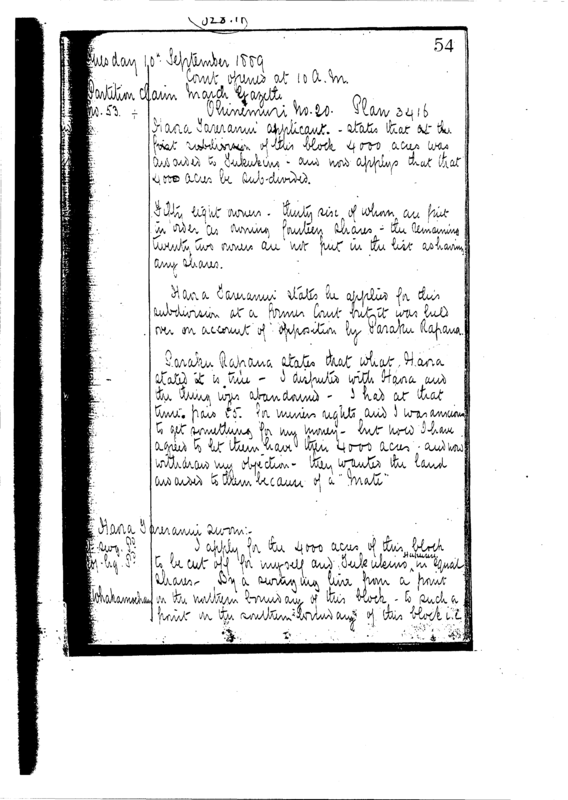 54
Tuesday 10th September 1889
Court opened at 10 A.M.
Partition claim March Gazette
No. 53. Ohinemuri No. 20. Plan 3416
Hara Tareranui applicant. - states that at the
first subdivision of this block 4000 acres was
awarded to Tukukino - and now applys that that
4000 acres be sub-divided.
Fifty eight owners - thirty six of whom are put
in order as owning fourteen shares - the remaining
twenty two owners are not put in the list as having
any shares.
Hara Tareranui states he applied for this
subdivision at a former Court but it was held
over on account of opposition by Paraku Rapana.
Paraku Rapana states that what Hara
stated it is true - I disputed with Hara and
the thing was abandoned - I had at that
time paid £5. for miners rights and I was anxious
to get something for my money - but now I have
agreed to let them have their 4000 acres - and now
withdraw my objection - they wanted the land
awarded to them because of a "Mate"
Hara Tareranui sworn:-
I apply for the 4000 acres of this block
to be cut off for myself and Tukukino in equal
shares - By a swinging line from a point
Whakamoehau on the northern boundary of this block - to such a
point on the southern boundary of this block i.e.